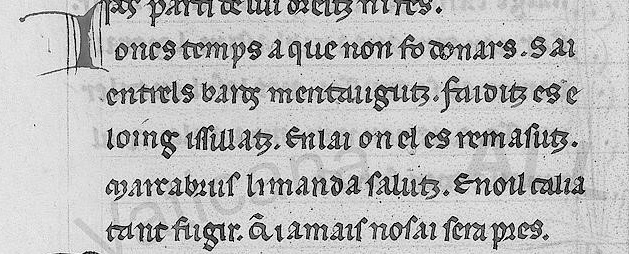 parti de lui dreitz ni fes.
Loncs temps a que non fo donars. Sai
entrels bartz mentaugutz. faiditz es e
loing issillatz. En lai on el es remasutz.
Marcabrus li manda salutz. E noil calia
tant fugir. q̃ iamais no sai sera pres.